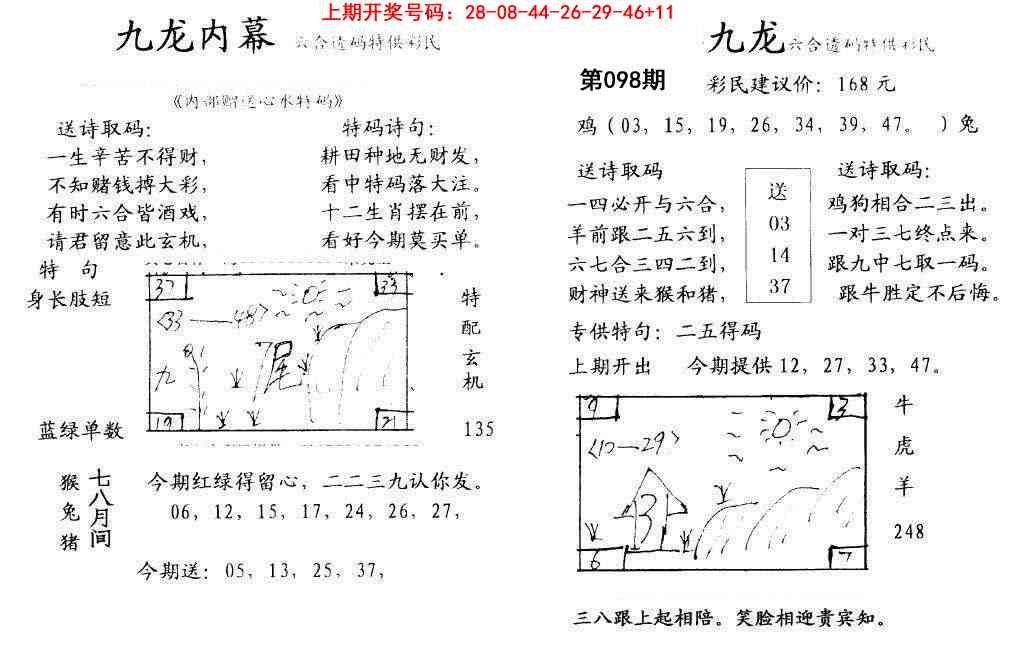 上期开奖号码：28-08-44-26-29-46+11
九龙内幕 六合透码特供彩民
《内部赠送心水特码》
送诗取码：
一生辛苦不得财，
不知赌钱搏大彩，
有时六合皆酒戏，
请君留意此玄机，
特码诗句：
耕田种地无财发，
看中特码落大注。
十二生肖摆在前，
看好今期莫买单。
特 句
身长肢短
蓝绿单数
37
33
<33——48>
九
7尾
19
21
特
配
玄
机
135
猴
兔
猪
七八月间
今期红绿得留心，二二三九认你发。
06，12，15，17，24，26，27，
今期送：05，13，25，37，
九龙 六合透码特供彩民
第098期 彩民建议价：168 元
鸡（03，15，19，26，34，39，47。 ）兔
送诗取码
一四必开与六合，
羊前跟二五六到，
六七合三四二到，
财神送来猴和猪，
送
03
14
37
送诗取码：
鸡狗相合二三出。
一对三七终点来。
跟九中七取一码。
跟牛胜定不后悔。
专供特句：二五得码
上期开出 今期提供 12，27，33，47。
9
3
<10—29>
3
6
7
牛
虎
羊
248
三八跟上起相陪。笑脸相迎贵宾知。